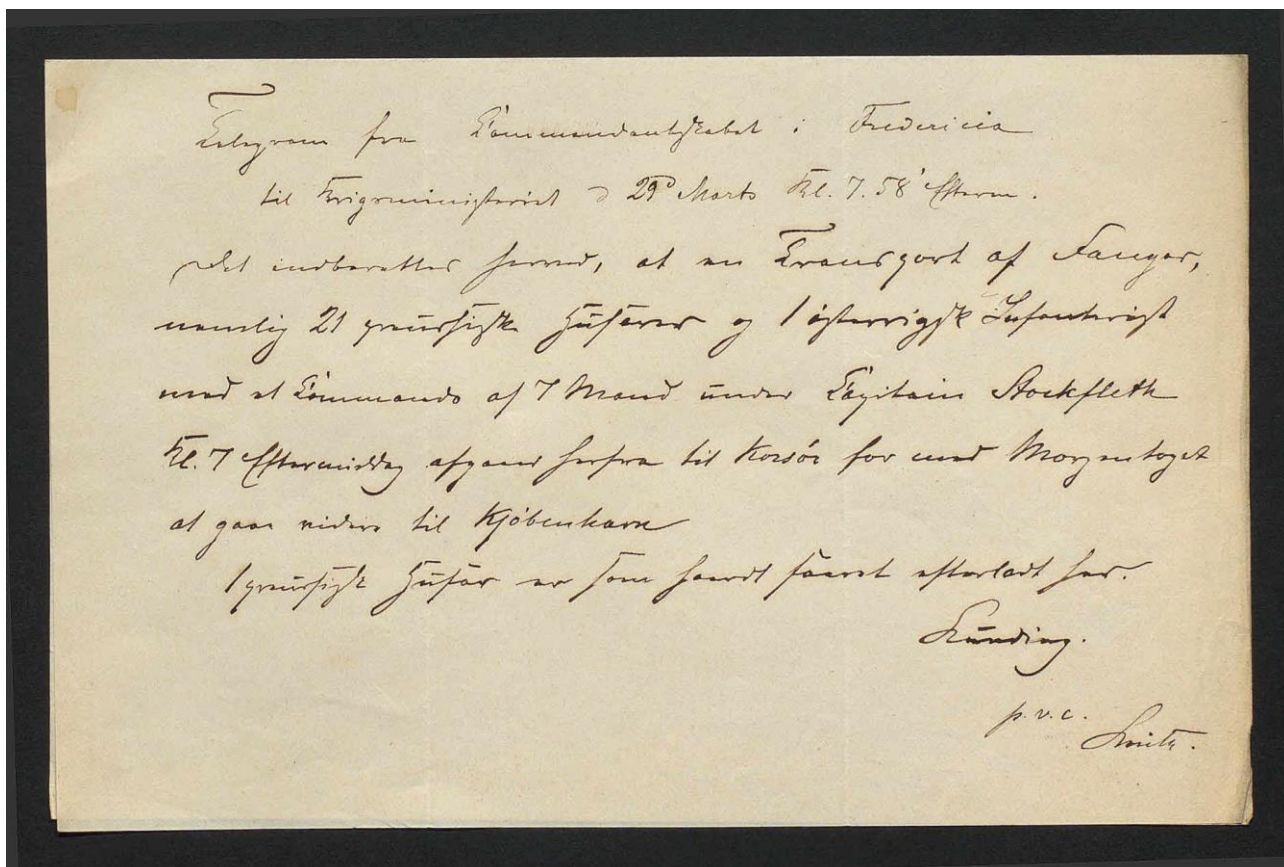 Telegram fra Commandantskabet i Fredericia
til Krigsministeriet d 29d Marts Kl. 7.58' Efterm.
Det indberettes herved, at en Transport af Fanger,
nemlig 21 preussiske Husarer og 1 østerrigsk Infanterist
med et Commando af 7 Mand under Capitain Stockfleth
Kl. 7 Eftermiddag afgaaer herfra til Korsör for med Morgentoget
at gaae videre til Kjöbenhavn
1 preussisk Husar er som haardt saaret efterladt her.
Lunding.
p.v.c.